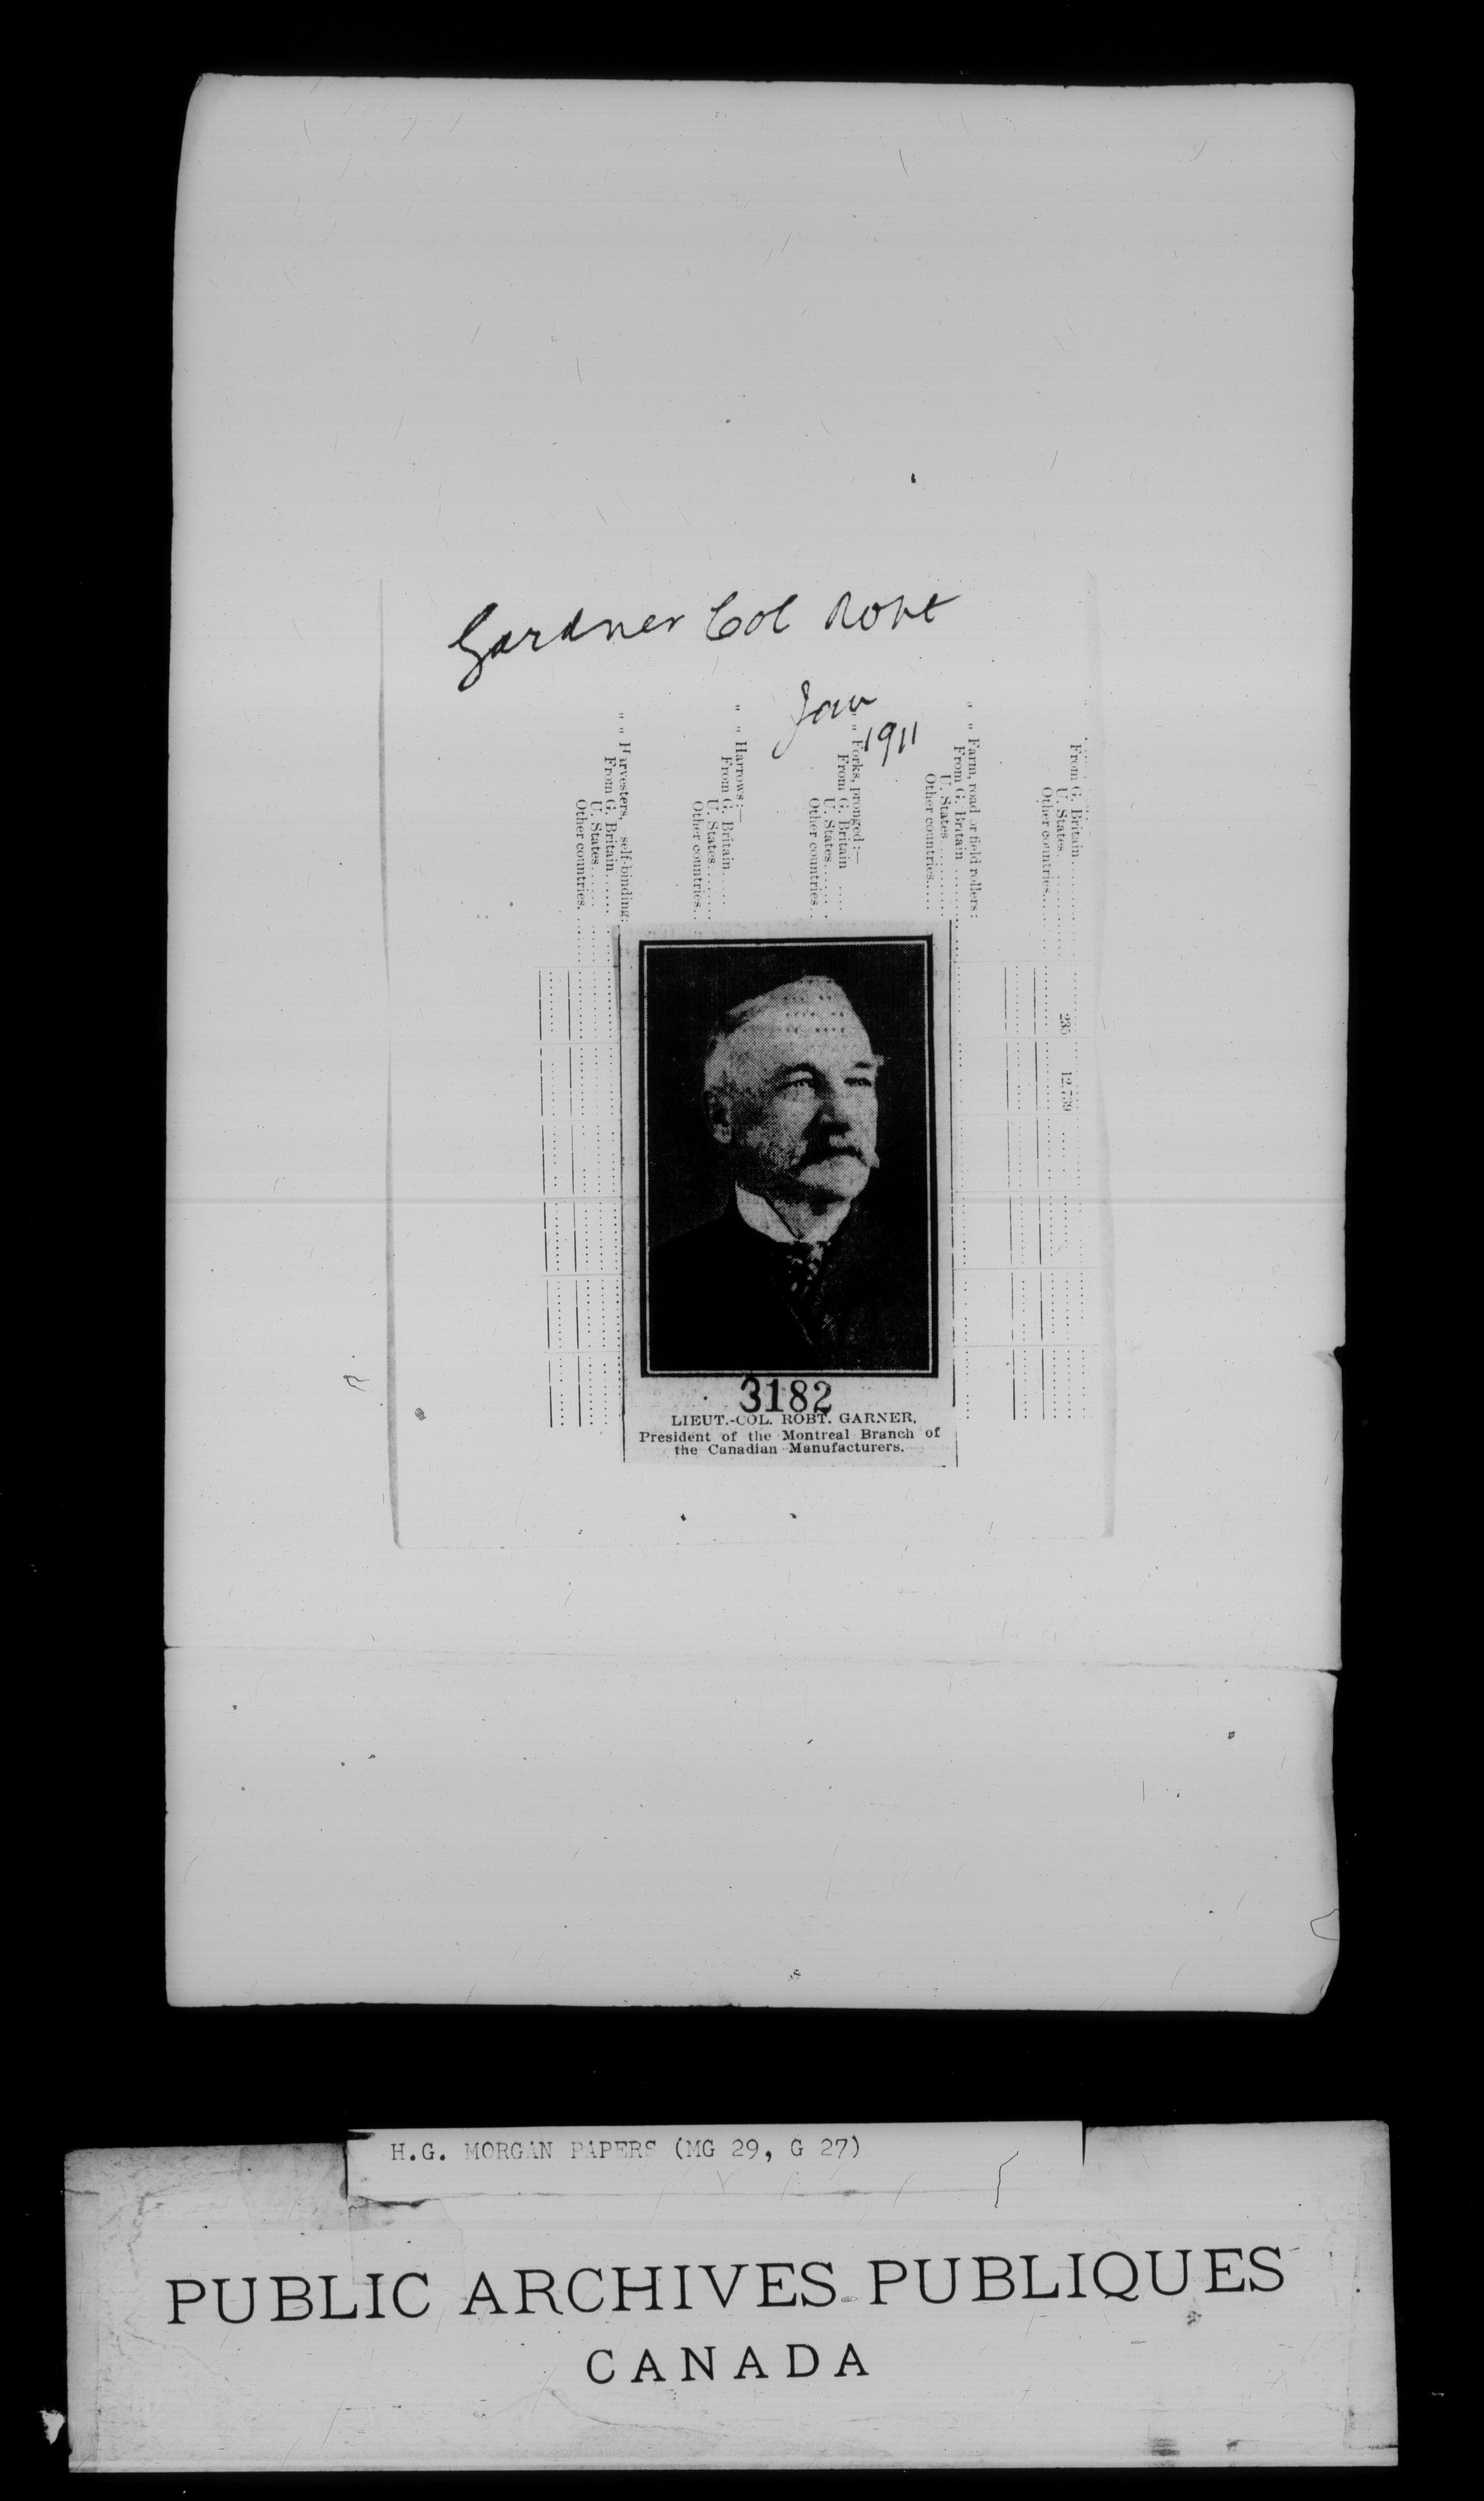 Gardner Col Robt
Jan
1911
" " Farm, road or field rollers:
From G. Britain
U. States
Other countries
From G. Britain
U. States
Other countries
235 12,739
" Forks, pronged:—
From G. Britain
U. States
Other countries
" " Harrows:—
From G. Britain
U. States
Other countries
" " Harvesters, self-binding:
From G. Britain
U. States
Other countries
3182
LIEUT.-COL. ROBT. GARNER,
President of the Montreal Branch of
the Canadian Manufacturers.
H.G. MORGAN PAPERS (MG 29, G 27)
PUBLIC ARCHIVES PUBLIQUES
CANADA